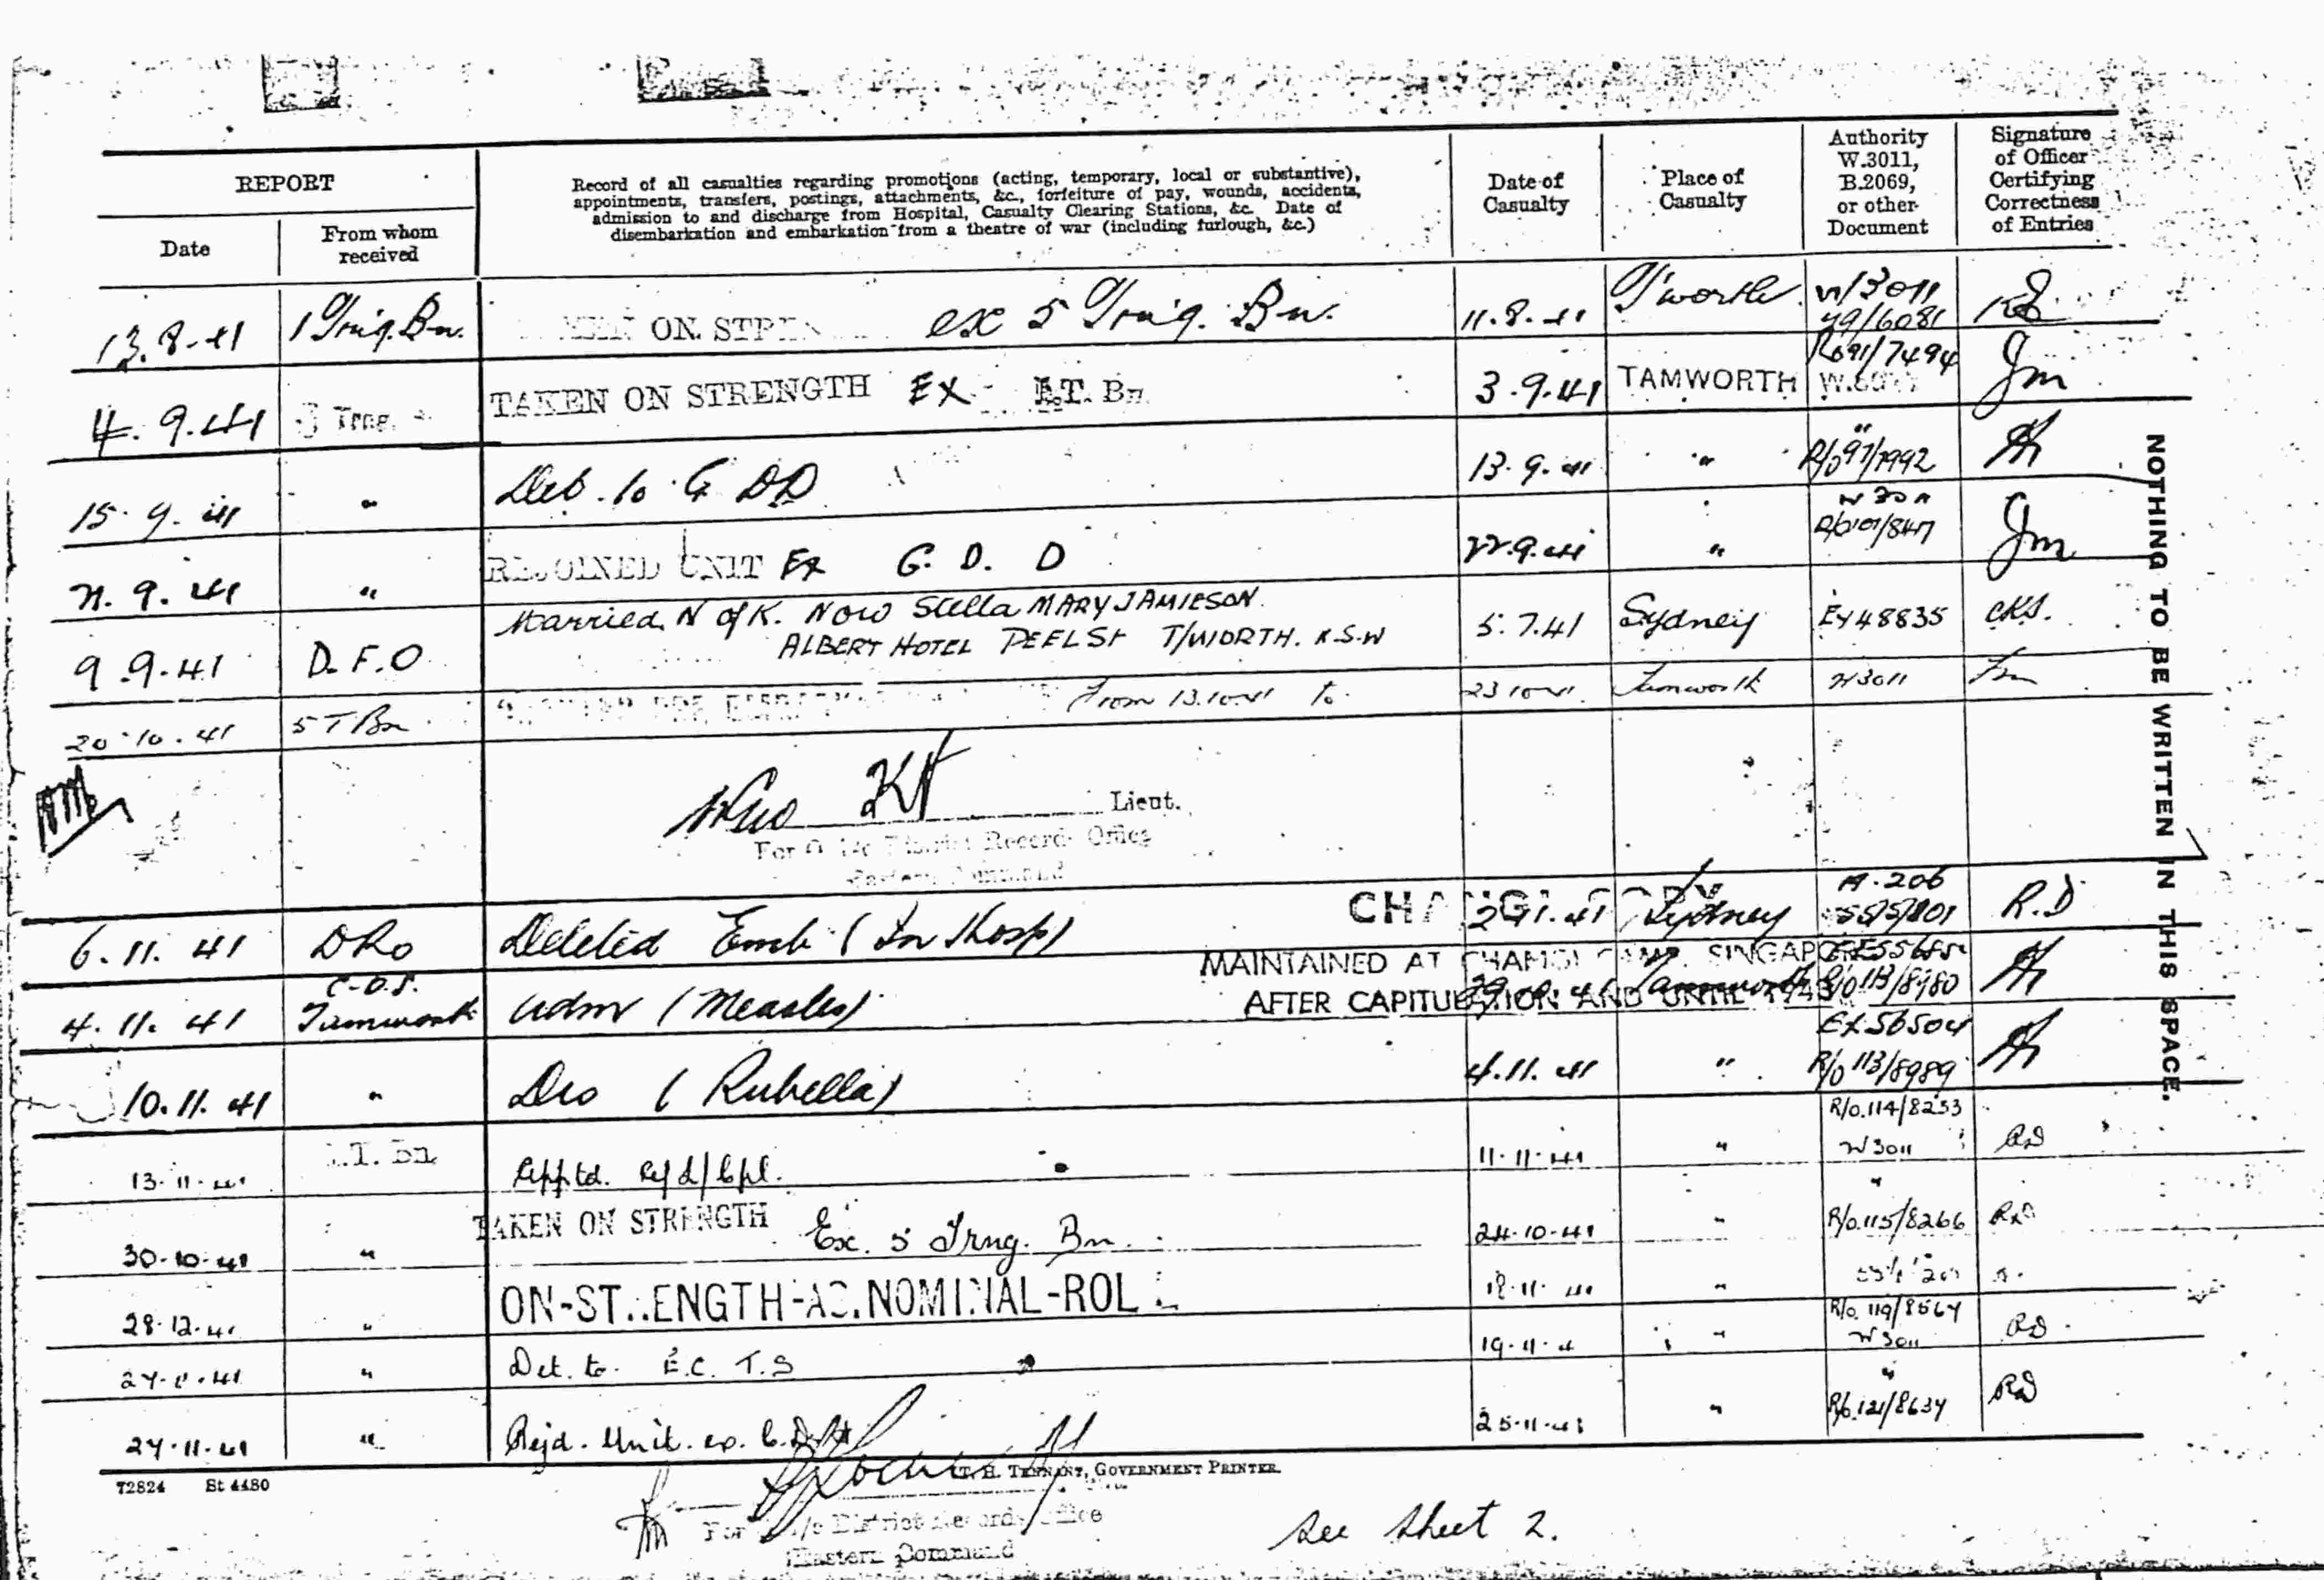 REPORT
Date
From whom
received
Record of all casualties regarding promotions (acting, temporary, local or substantive),
appointments, transfers, postings, attachments, &c., forfeiture of pay, wounds, accidents,
admission to and discharge from Hospital, Casualty Clearing Stations, &c. Date of
disembarkation and embarkation from a theatre of war (including furlough, &c.)
Date of
Casualty
Place of
Casualty
Authority
W.3011,
B.2069,
or other
Document
Signature
of Officer
Certifying
Correctness
of Entries
13.8.41 1 Trng. Bn. ON ex 5 Trng. Bn. 11.8.41 T'worth W/3011
4.9.41 Trng. TAKEN ON STRENGTH EX I.T. Bn 3.9.41 TAMWORTH Jm
15.9.41 " to G DD 13.9.41 " R/o 97/7992
9.41 " REJOINED UNIT Ex G. D. D 22.9.41 " Jm
9.9.41 D.F.O Married N of K. Now Stella MARY JAMIESON 5.7.41 Sydney EX48835 CKS.
ALBERT HOTEL PEEL St T/WORTH. N.S.W
20.10.41 5 T Bn From 13.10.41 to 23.10.41 Tamworth W3011
Lieut.
For O i/c District Records Office
Eastern Command
CHANGI COPY
MAINTAINED AT CHANGI CAMP, SINGAPORE
AFTER CAPITULATION AND UNTIL
6.11.41 DRO Deleted Emb (In Hosp) Sydney A.206 R.D
4.11.41 C.D.S. Tamworth Adm (Measles) Tamworth R/o 113/8980
10.11.41 " Dis (Rubella) 4.11.41 " EX56504 R/o 113/8989
13.11.41 I.T. Bn Apptd. L/Cpl. 11.11.41 " R/o.114/8253 W3011 RD
30.10.41 " TAKEN ON STRENGTH Ex. 5 Trng. Bn. 24.10.41 " " R/o.115/8266 RD
28.12.41 " ON-STRENGTH-AS.NOMINAL-ROLL 18.11.41 "
27.11.41 " Det. to E.C. T.S 19.11.41 " R/o. 119/8567 W3011 RD
27.11.41 " Rejd. Unit. ex. 25.11.41 " " R/o.121/8637 RD
72824 St 4480
T. H. TENNANT, GOVERNMENT PRINTER.
For O i/c District Records Office
Eastern Command
See Sheet 2.
NOTHING TO BE WRITTEN IN THIS SPACE.